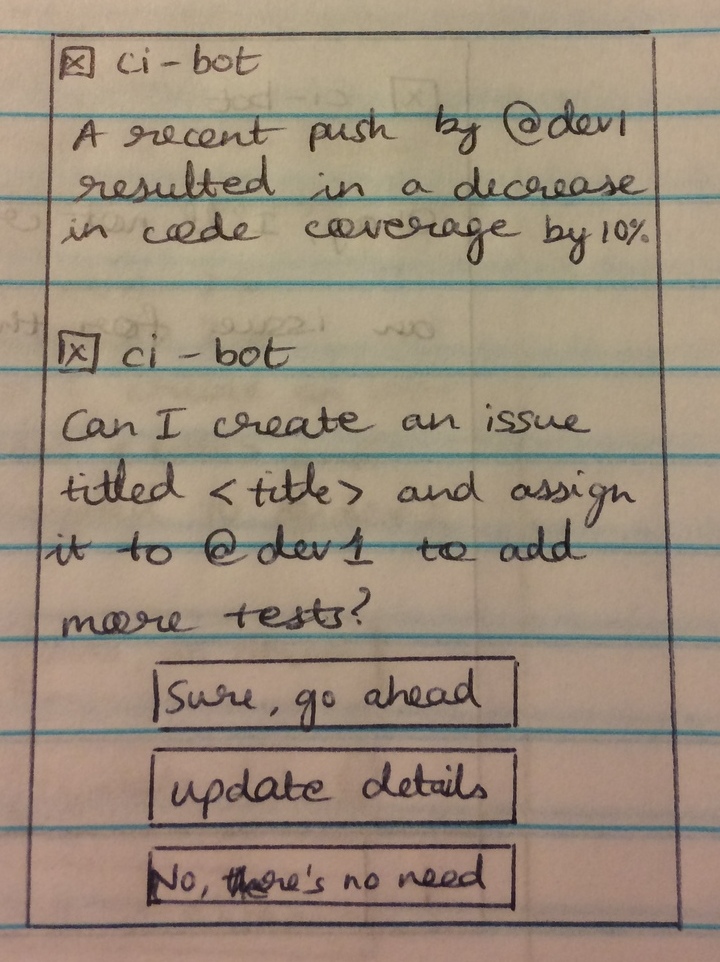 ci-bot
A recent push by @dev1
resulted in a decrease
in code coverage by 10%
ci-bot
Can I create an issue
titled <title> and assign
it to @dev1 to add
more tests?
Sure, go ahead
update details
No, there's no need